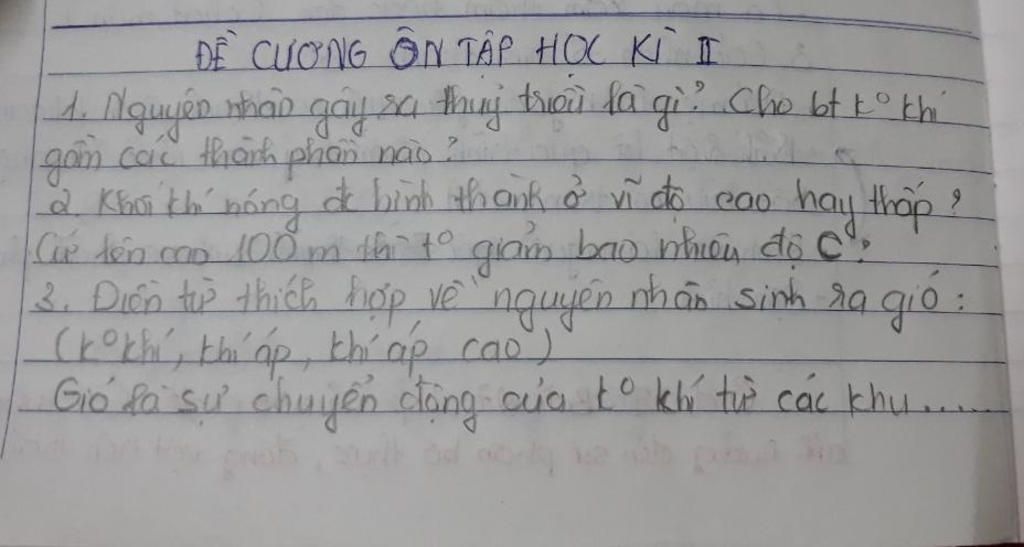 ĐỀ CƯƠNG ÔN TẬP HỌC KÌ II
1. Nguyên nhân gây ra thuỷ triều là gì? Cho bt kº khí
gồm các thành phần nào?
2. Khối khí nóng đc hình thành ở vĩ độ cao hay thấp?
Cứ lên cao 100m thì tº giảm bao nhiêu độ C?
3. Điền từ thích hợp về nguyên nhân sinh ra gió:
(kº khí, khí áp, khí áp cao)
Gió là sự chuyển động của kº khí từ các khu.....